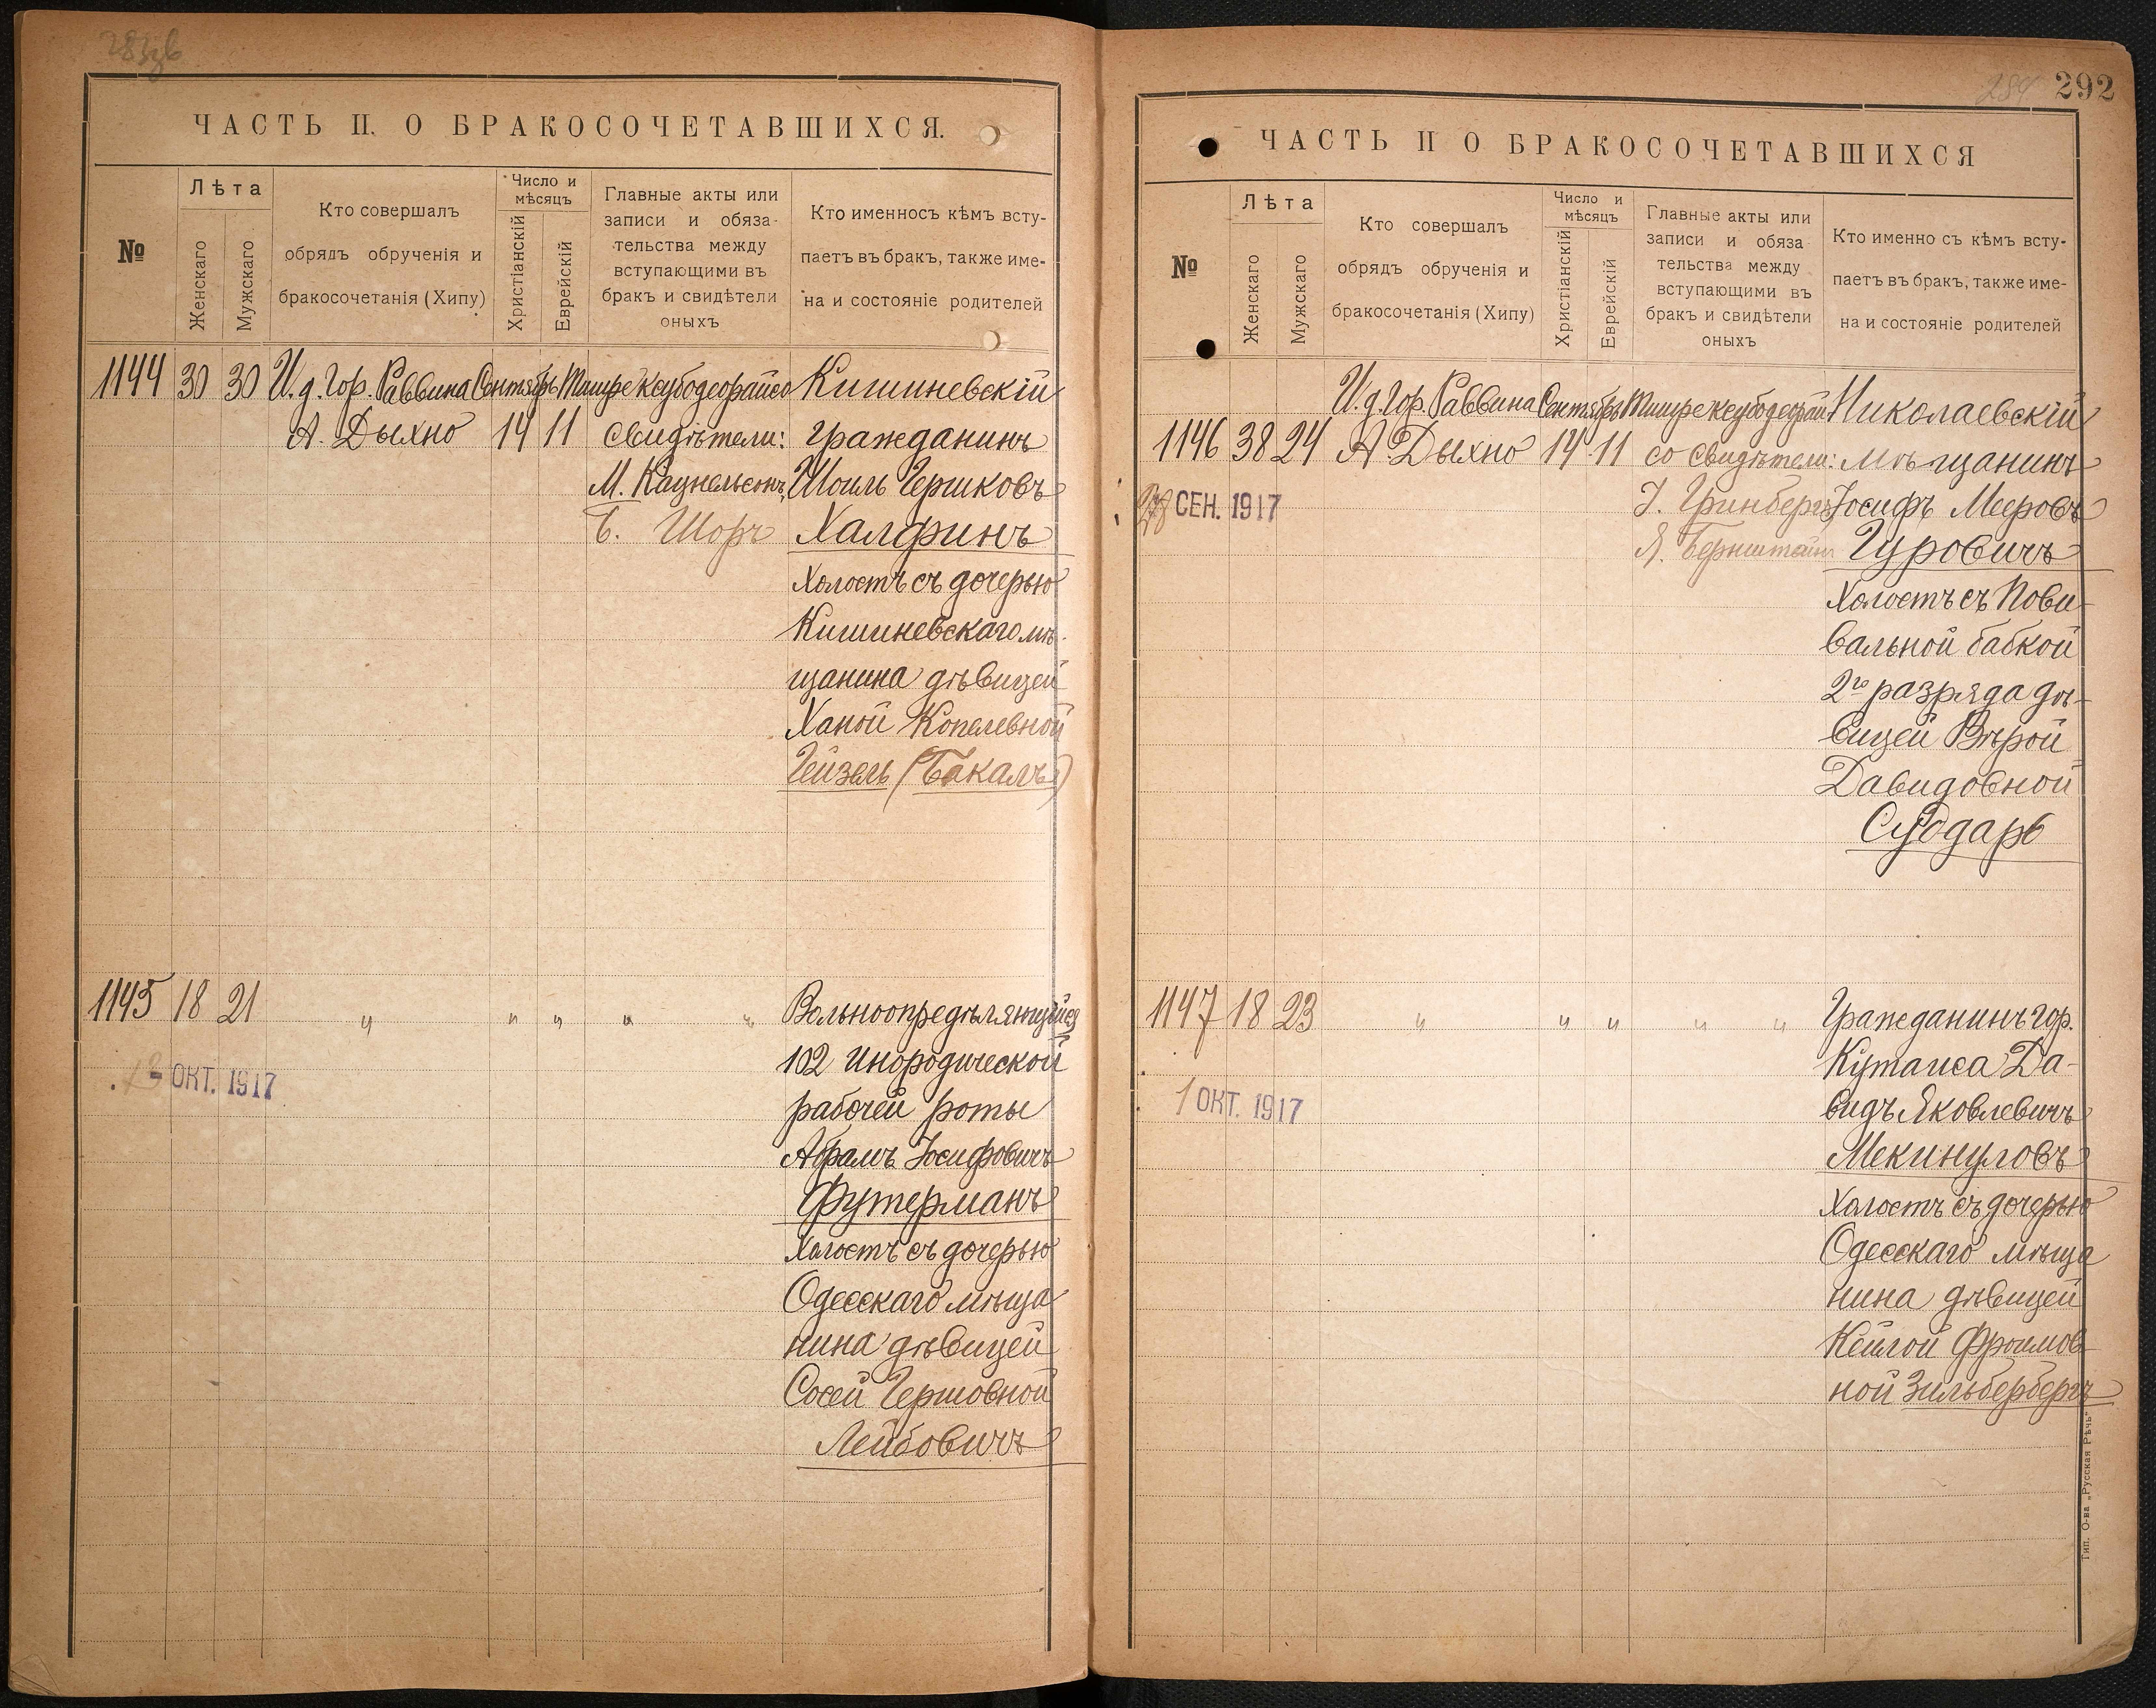 ЧАСТЬ II. О БРАКОСОЧЕТАВШИХСЯ.
№
Лѣта
Женскаго
Мужскаго
Кто совершалъ
обрядъ обрученія и
бракосочетанія (Хипу)
Число и
мѣсяцъ
Христіанскій
Еврейскій
Главные акты или
записи и обяза-
тельства между
вступающими въ
бракъ и свидѣтели
оныхъ
Кто именносъ кѣмъ всту-
паетъ въ бракъ, также име-
на и состояніе родителей
1144 30 30 И.д. Гор. Раввина Сентябрь Тишре ксубодеорайсо Кишиневскій
А. Дыхно 14 11 свидѣтели: гражданинъ
М. Кацнельсонъ, Шоиль Гершковъ
Б. Шоръ Халфинъ
холостъ съ дочерью
Кишиневскаго мѣ-
щанина дѣвицей
Ханой Копелевной
Гейзель (Бакалъ)
1145 18 21 " " " " " Вольноопредѣляющійся
102 Инородческой
ОКТ. 1917
рабочей роты
Абрамъ Іосифовичъ
Футерманъ
холостъ съ дочерью
Одесскаго мѣща
нина дѣвицей
Сосей Гершовной
Лейбовичъ
292
ЧАСТЬ II О БРАКОСОЧЕТАВШИХСЯ
№
Лѣта
Женскаго
Мужскаго
Кто совершалъ
обрядъ обрученія и
бракосочетанія (Хипу)
Число и
мѣсяцъ
Христіанскій
Еврейскій
Главные акты или
записи и обяза
тельства между
вступающими въ
бракъ и свидѣтели
оныхъ
Кто именно съ кѣмъ всту-
паетъ въ бракъ, также име-
на и состояніе родителей
И.д. Гор. Раввина Сентябрь Тишре ксубодеорай Николаевскій
1146 38 24 А. Дыхно 14 11 со свидѣтели: мѣщанинъ
СЕН. 1917 І. Гринбергъ Іосифъ Мееровъ
Я. Бернштейн Гуровичъ
холостъ съ Пови-
вальной бабкой
2го разряда дѣ-
вицей Вѣрой
Давидовной
Сударь
1147 18 23 " " " " " Гражданинъ гор.
Кутаиса Да-
1 ОКТ. 1917 видъ Яковлевичъ
Мекинуловъ
холостъ съ дочерью
Одесскаго мѣща
нина дѣвицей
Кейлой Фроимов
ной Зильбербергъ
Тип. О-ва „Русская Рѣчь“